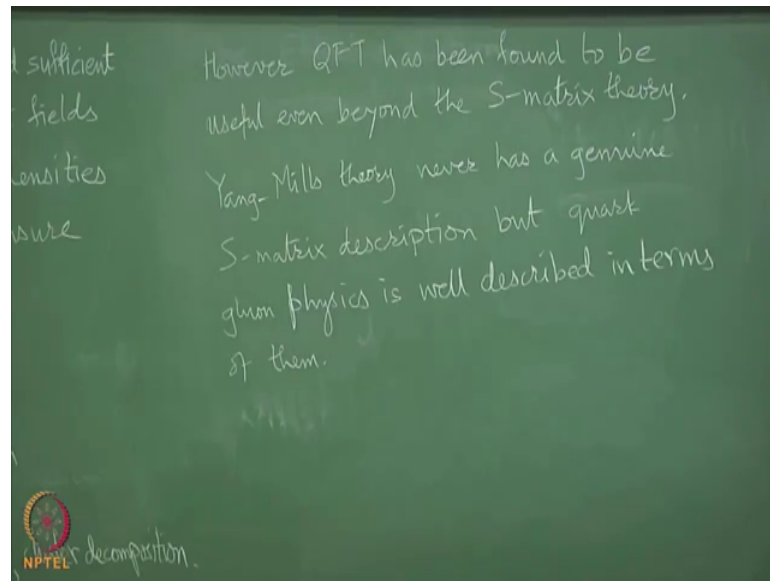 sufficient
fields
ensities
sure
However QFT has been found to be
useful even beyond the S-matrix theory.
Yang-Mills theory never has a genuine
S-matrix description but quark
gluon physics is well described in terms
of them.
decomposition.
NPTEL